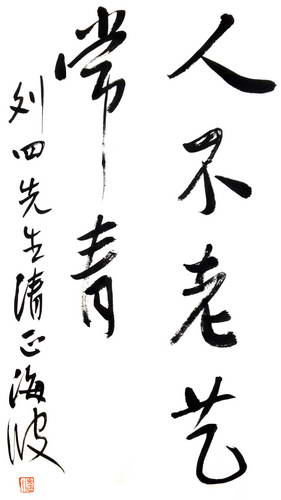 人不老艺
常青
刘四先生清正海波